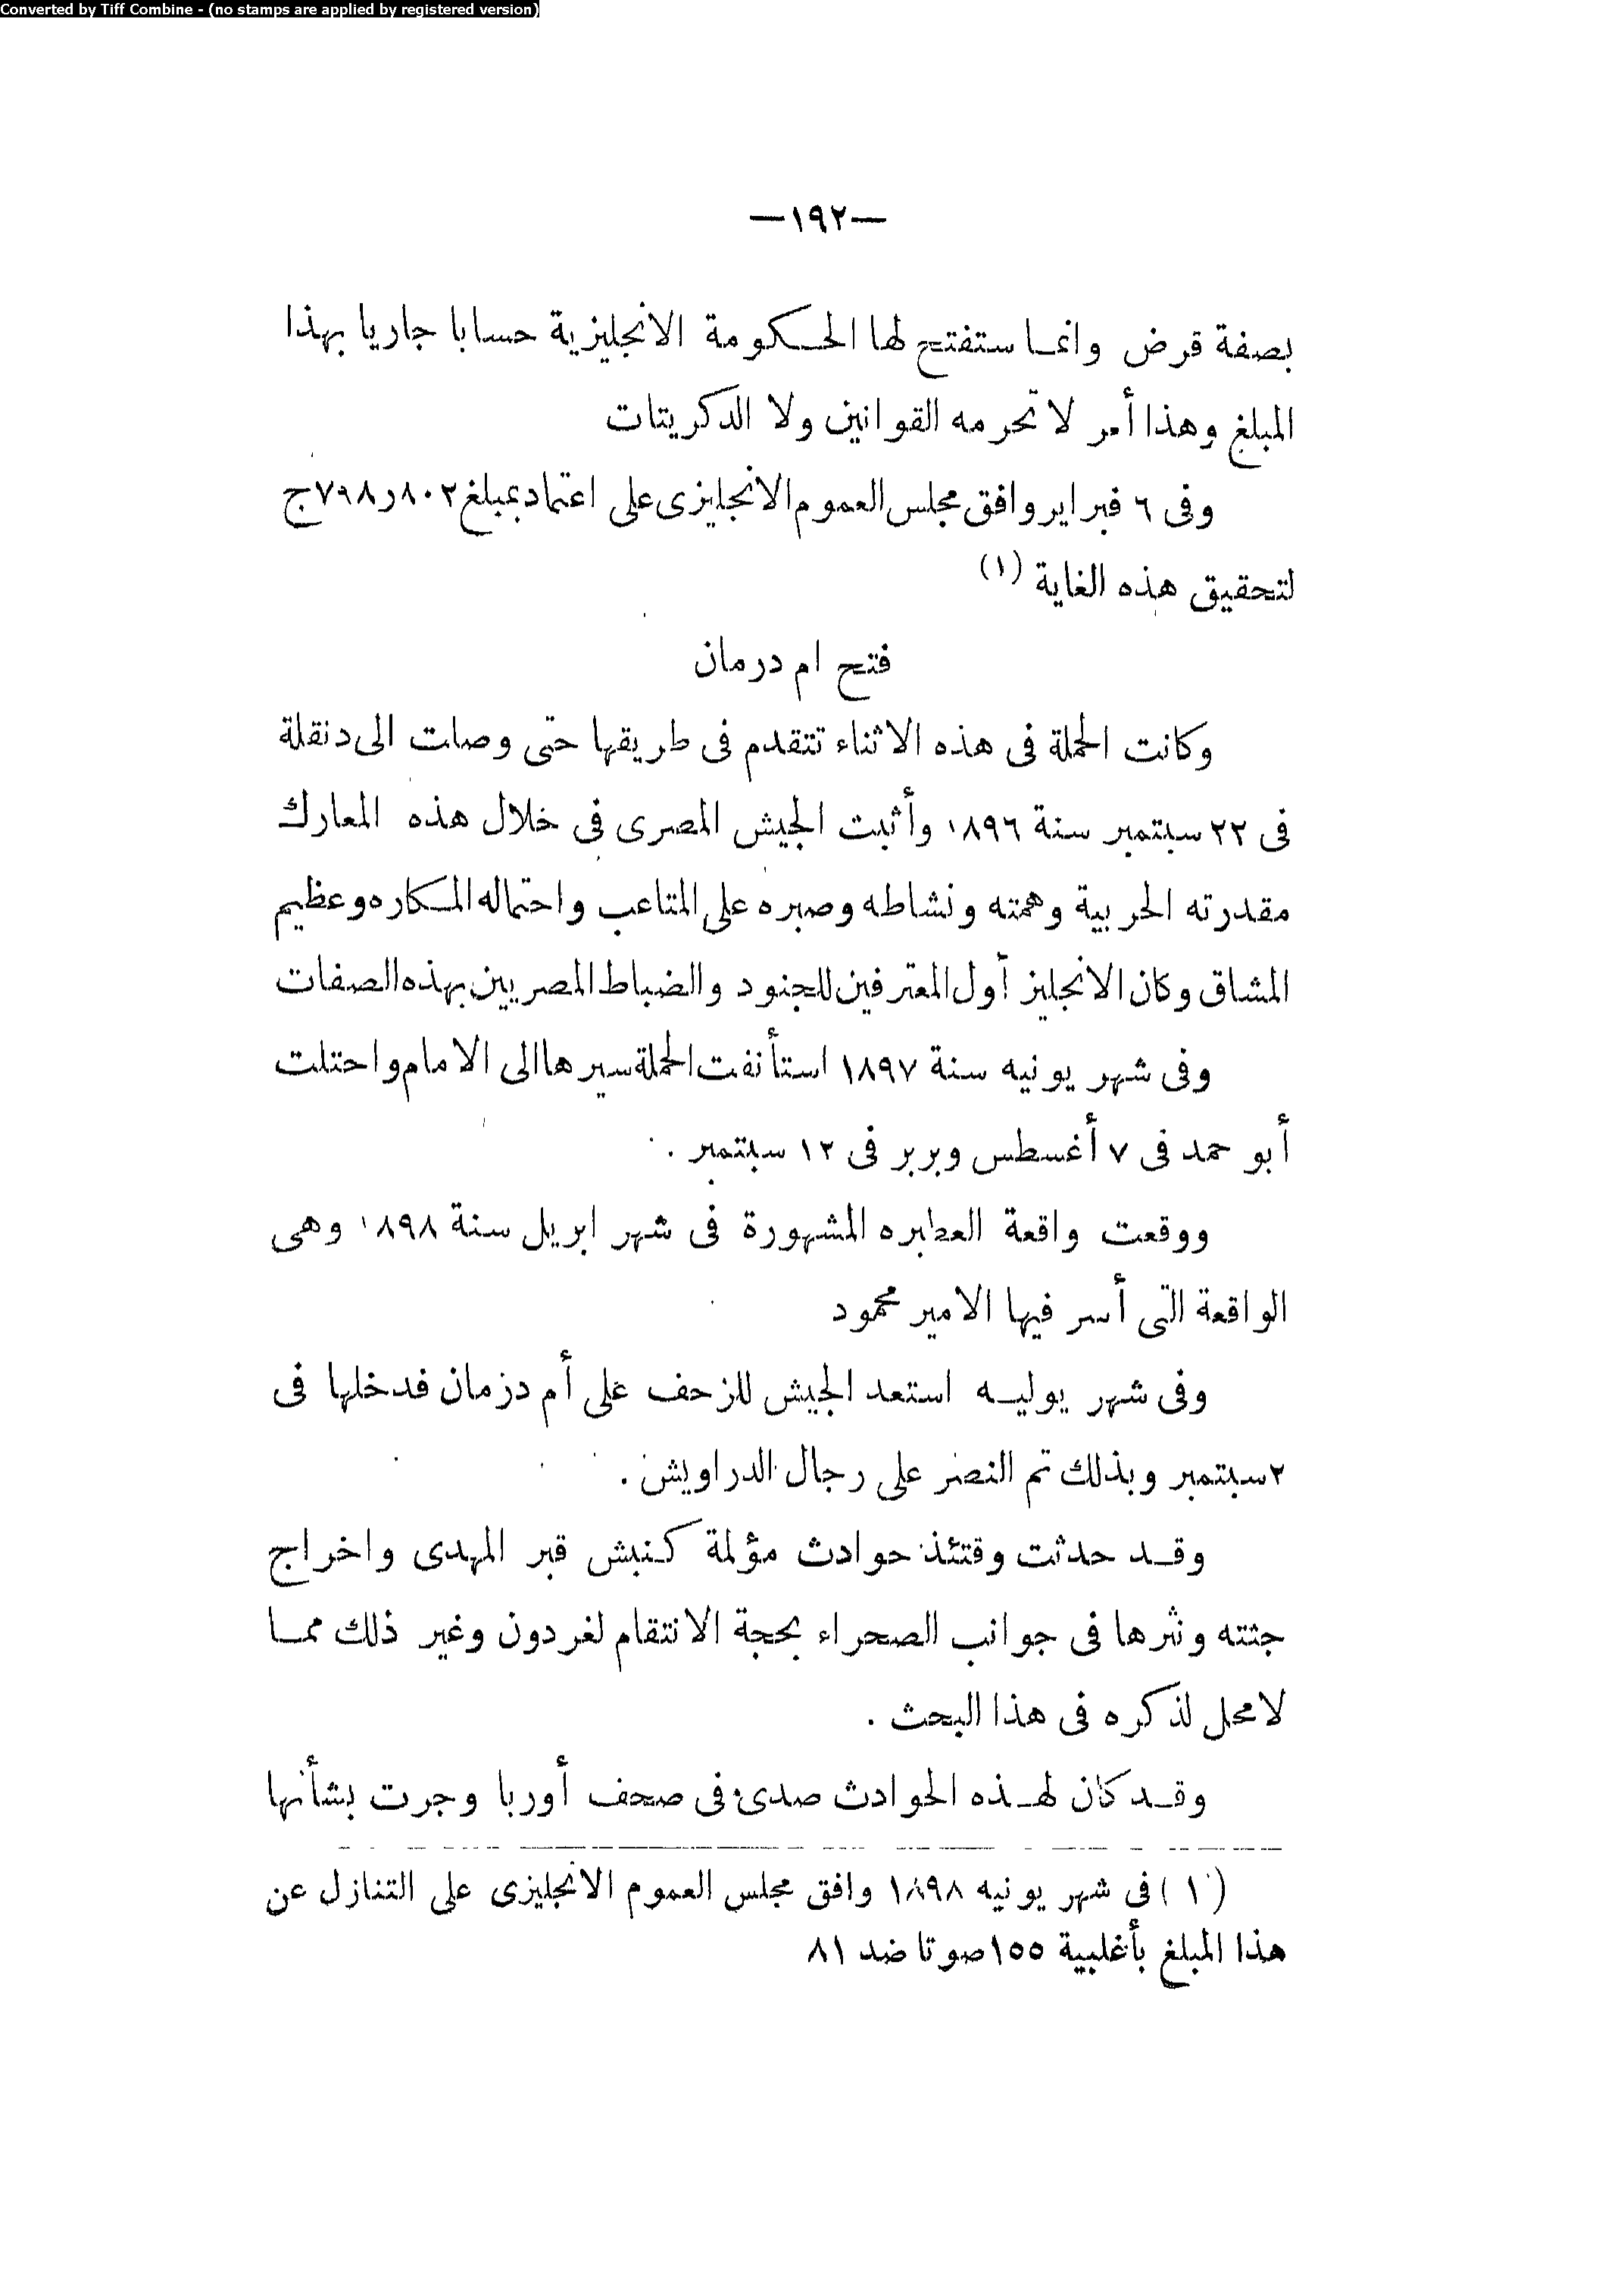 Converted by Tiff Combine - (no stamps are applied by registered version)
—١٩٢—
بصفة قرض وانما ستفتح لها الحكومة الانجليزية حسابا جاريا بهذا
المبلغ وهذا أمر لا تحرمه القوانين ولا الدكريتات
وفى ٦ فبراير وافق مجلس العموم الانجليزى على اعتماد بمبلغ ٧٩٨ر٨٠٢ ج
لتحقيق هذه الغاية (١)
فتح ام درمان
وكانت الحملة فى هذه الاثناء تتقدم فى طريقها حتى وصلت الى دنقلة
فى ٢٢ سبتمبر سنة ١٨٩٦ وأثبت الجيش المصرى فى خلال هذه المعارك
مقدرته الحربية وهمته ونشاطه وصبره على المتاعب واحتماله المكاره وعظيم
المشاق وكان الانجليز أول المعترفين للجنود والضباط المصريين بهذه الصفات
وفى شهر يونيه سنة ١٨٩٧ استأنفت الحملة سيرها الى الامام واحتلت
أبو حمد فى ٧ أغسطس وبربر فى ١٣ سبتمبر .
ووقعت واقعة العطبره المشهورة فى شهر ابريل سنة ١٨٩٨ وهى
الواقعة التى أسر فيها الامير محمود
وفى شهر يوليه استعد الجيش للزحف على أم درمان فدخلها فى
٢ سبتمبر وبذلك تم النصر على رجال الدراويش .
وقد حدثت وقتئذ حوادث مؤلمة كنبش قبر المهدى واخراج
جثته ونثرها فى جوانب الصحراء بحجة الانتقام لغردون وغير ذلك مما
لا محل لذكره فى هذا البحث .
وقد كان لهذه الحوادث صدى فى صحف أوربا وجرت بشأنها
(١) فى شهر يونيه ١٨٩٨ وافق مجلس العموم الانجليزى على التنازل عن
هذا المبلغ بأغلبية ١٥٥ صوتا ضد ٨١